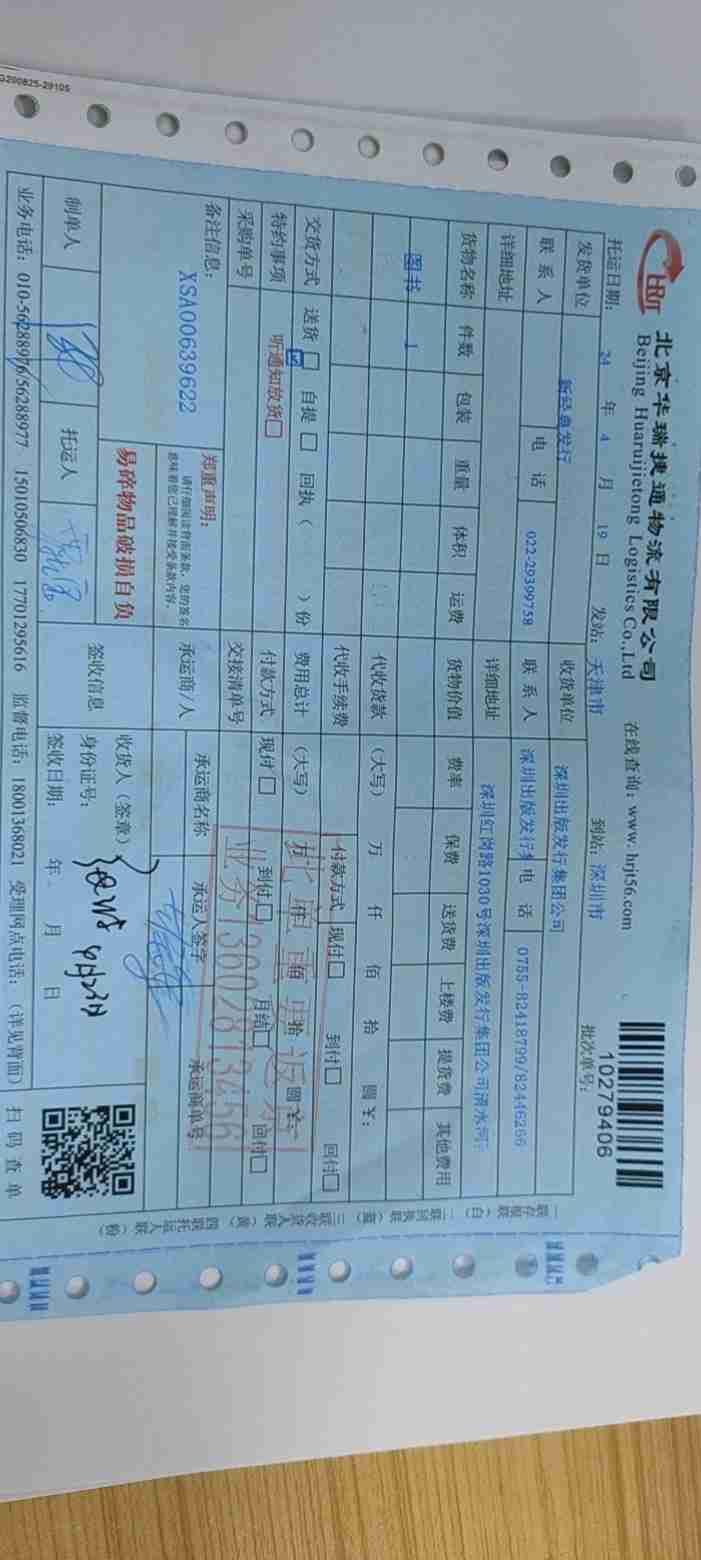 G200825-29105
HRJT 北京华瑞捷通物流有限公司
Beijing Huaruijietong Logistics Co.,Ltd
在线查询：www.hrjt56.com
批次单号：
10279406
托运日期： 24 年 4 月 19 日 发站：天津市 到站：深圳市
发货单位 新经典发行 收货单位 深圳出版发行集团公司
联系人 电话 022-29399758 联系人 深圳出版发行 电话 0755-82418799/82446266
详细地址 详细地址 深圳红岗路1030号深圳出版发行集团公司清水河
货物名称 件数 包装 重量 体积 运费 货物价值 费率 保费 送货费 上楼费 提货费 其他费用
图书 1
代收货款 （大写） 万 仟 佰 拾 圆 ￥：
代收手续费 付款方式 现付□ 到付□ 回付□
交货方式 送货☑ 自提□ 回执（ ）份 费用总计 （大写） 万 仟 佰 拾 圆 ￥：
特约事项 听通知放货□ 付款方式 现付□ 到付□ 月结□ 回付□
采购单号 交接清单号
此单重要
业务13002813456
备注信息：
XSA00639622
郑重声明：
请仔细阅读背面条款，您的签名
意味着您已理解并接受条款内容。
易碎物品破损自负
承运商/人 承运商名称 承运人签字 承运商单号
制单人 托运人
签收信息 收货人（签章）
身份证号：
签收日期： 年 月 日
业务电话：010-56288976/56288977 15010506830 17701295616 监督电话：18001368021 受理网点电话：（详见背面） 扫码查单
一联存根联（白） 二联回执联（蓝） 三联收货人联（黄） 四联托运人联（粉）